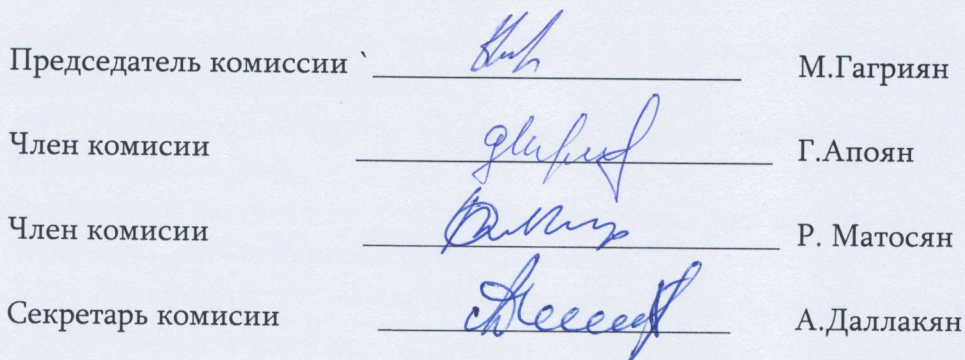 Председатель комиссии ` М.Гагриян
Член комисии Г.Апоян
Член комисии Р. Матосян
Секретарь комисии А.Даллакян